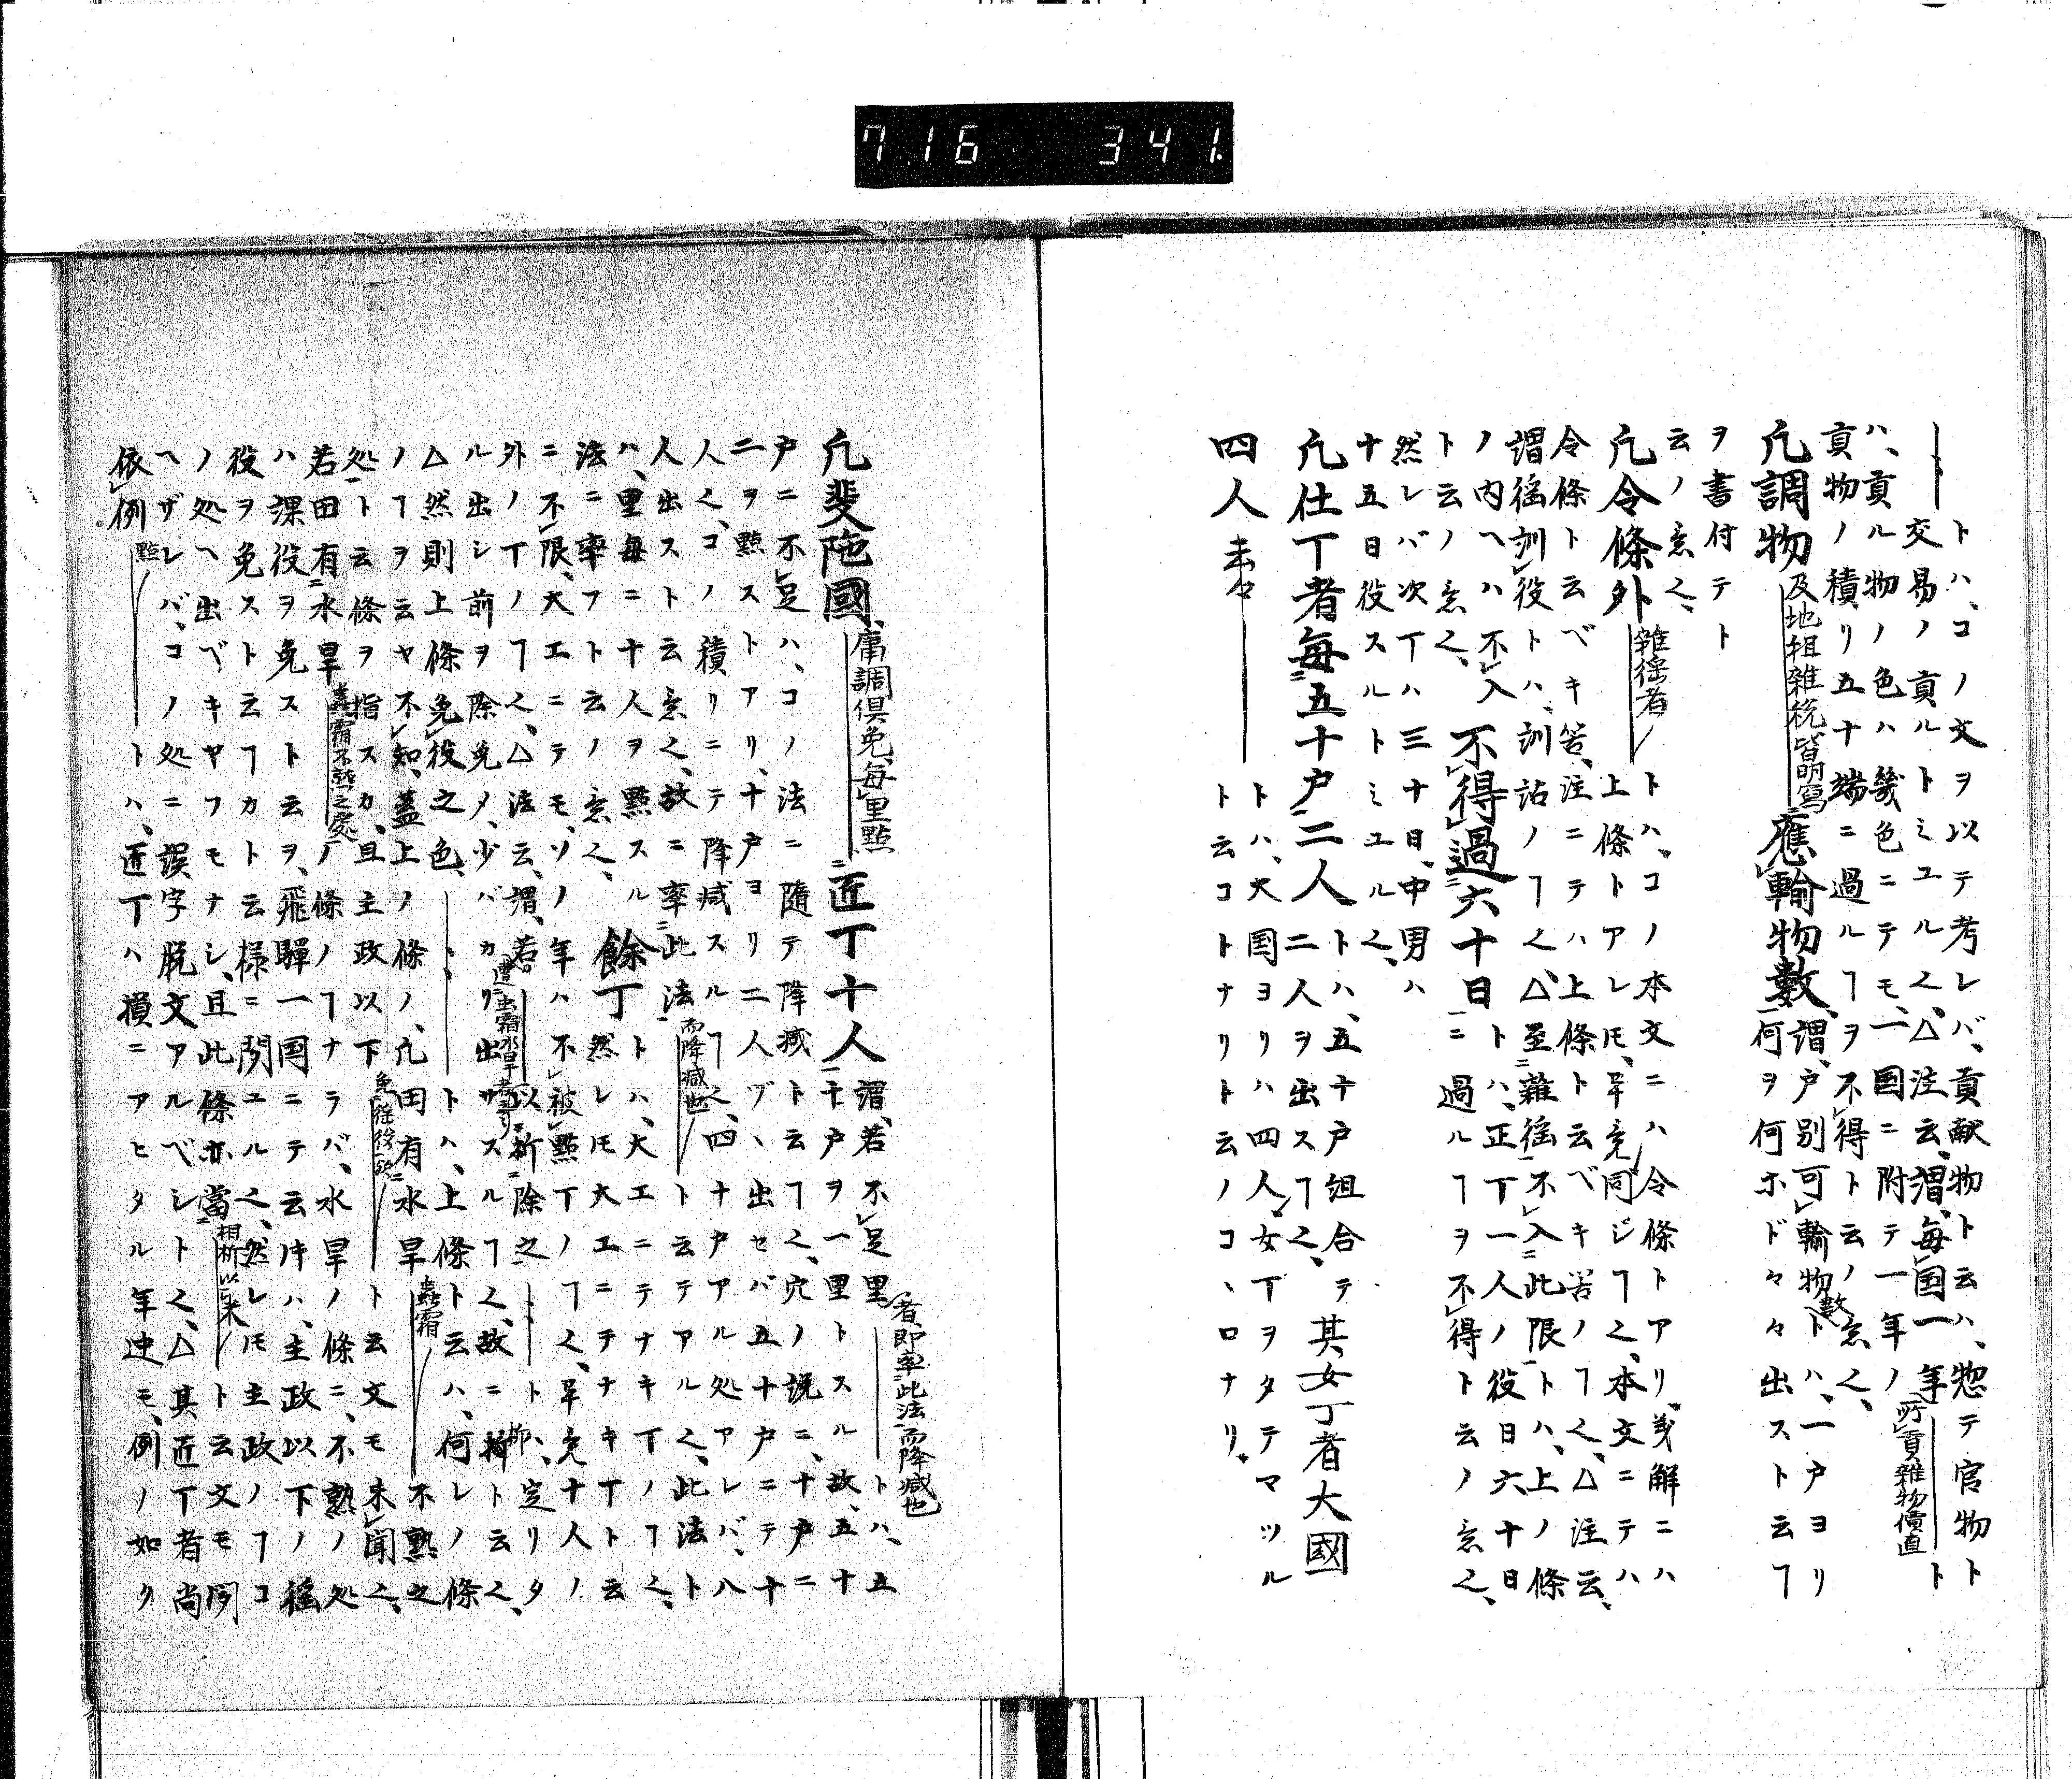 716 341.
トハ、コノ文ヲ以テ考レバ、貢献物ト云ハ、惣テ官物ト
交易ノ貢ルトミユルく、△注云、謂、毎国一年 所貢雑物価直 ト
ハ、貢ル物ノ色ハ幾色ニテモ、一国ニ附テ一年ノ
貢物ノ積リ五十端ニ過ルヿヲ不得、ト云ノ意く、
凢調物 及地租雜税、皆明寫 應輸物數、謂、戸別可輸物數トハ、一戸ヨリ
何ヲ何ホド々々出スト云ヿ
ヲ書付テト
云ノ意く、
凢令條外 雑徭者 トハ、コノ本文ニハ令條トアリ、義解ニハ
上條トアレモ、畢竟同ジヿく、本文ニテハ
令條ト云ベキ筈、注ニテハ上條ト云ベキ筈ノヿく、△注云、
謂徭訓役トハ、訓詁ノヿく、△至雜徭不入此限トハ、上ノ條
ノ内ヘハ不入 不得過六十日 トハ、正丁一人ノ役日六十日
ト云ノ意く、 ニ過ルヿヲ不得ト云ノ意く、
然レバ次丁ハ三十日、中男ハ
十五日役スルトミユルく、
凢仕丁者毎五十戸二人 トハ、五十戸組合テ 其女丁者大國
二人ヲ出スヿく、
四人 云々 トハ、大国ヨリハ四人、女丁ヲタテマツル
ト云コトナリト云ノコヽロナリ。
凢斐陁國、庸調倶免、毎里點 匠丁十人 謂、若不足里 者、即率此法而降減也 トハ、五
十戸ヲ一里トスル故、五十
戸ニ不足ハ、コノ法ニ隨テ降減ト云ヿく、穴ノ説ニ、十戸ニ
二ヲ點ストアリ、十戸ヨリ二人ヅヽ出セバ五十戸ニテ十
人く、コノ積リニテ降減スルヿく、四十戸アル処アレバ、八
人出スト云意く、故ニ率此法 而降減也 ト云テアルく、此法ト
ハ、里毎ニ十人ヲ點スル 餘丁 トハ、大エニテナキ丁ノヿく、
法ニ率フト云ノ意く、 然レモ大エニテナキ丁ト云
ニ不限、大エニテモ、ソノ年ハ不被點丁ノヿく、畢竟十人ノ
外ノ丁ノヿく、△法云、謂、若遭虫霜水旱 以折除之 トハ、定リタ
ル出シ前ヲ除免ノ、少バカリ出サスルヿく、故ニ折ト云く、
△然則上條免役之色、 トハ、上條ト云ハ、何レノ條
ノヿヲ云ヤ不知、蓋上ノ條ノ、凢田有水旱 蟲霜 不熟之
処ト云條ヲ指スカ、且主政以下 免徭役 ト云文モ未聞く、
若田有水旱 蟲霜不熟之處 ノ條ノヿナラバ、水旱ノ條ニ、不熟ノ処
ハ課役ヲ免スト云ヲ、飛驒一国ニテ云片ハ、主政以下ノ徭
役ヲ免スト云ヿカト云様ニ聞ユルく、然レモ主政ノヿコ
ノ処ヘ出ベキヤフモナシ、且此條亦當 相折以米 ト云文モ聞
ヘザレバ、コノ処ニ誤字脱文アルベシトく、△其匠丁者尚
依例 點 トハ、匠丁ハ損ニアヒタル年迚モ、例ノ如ク